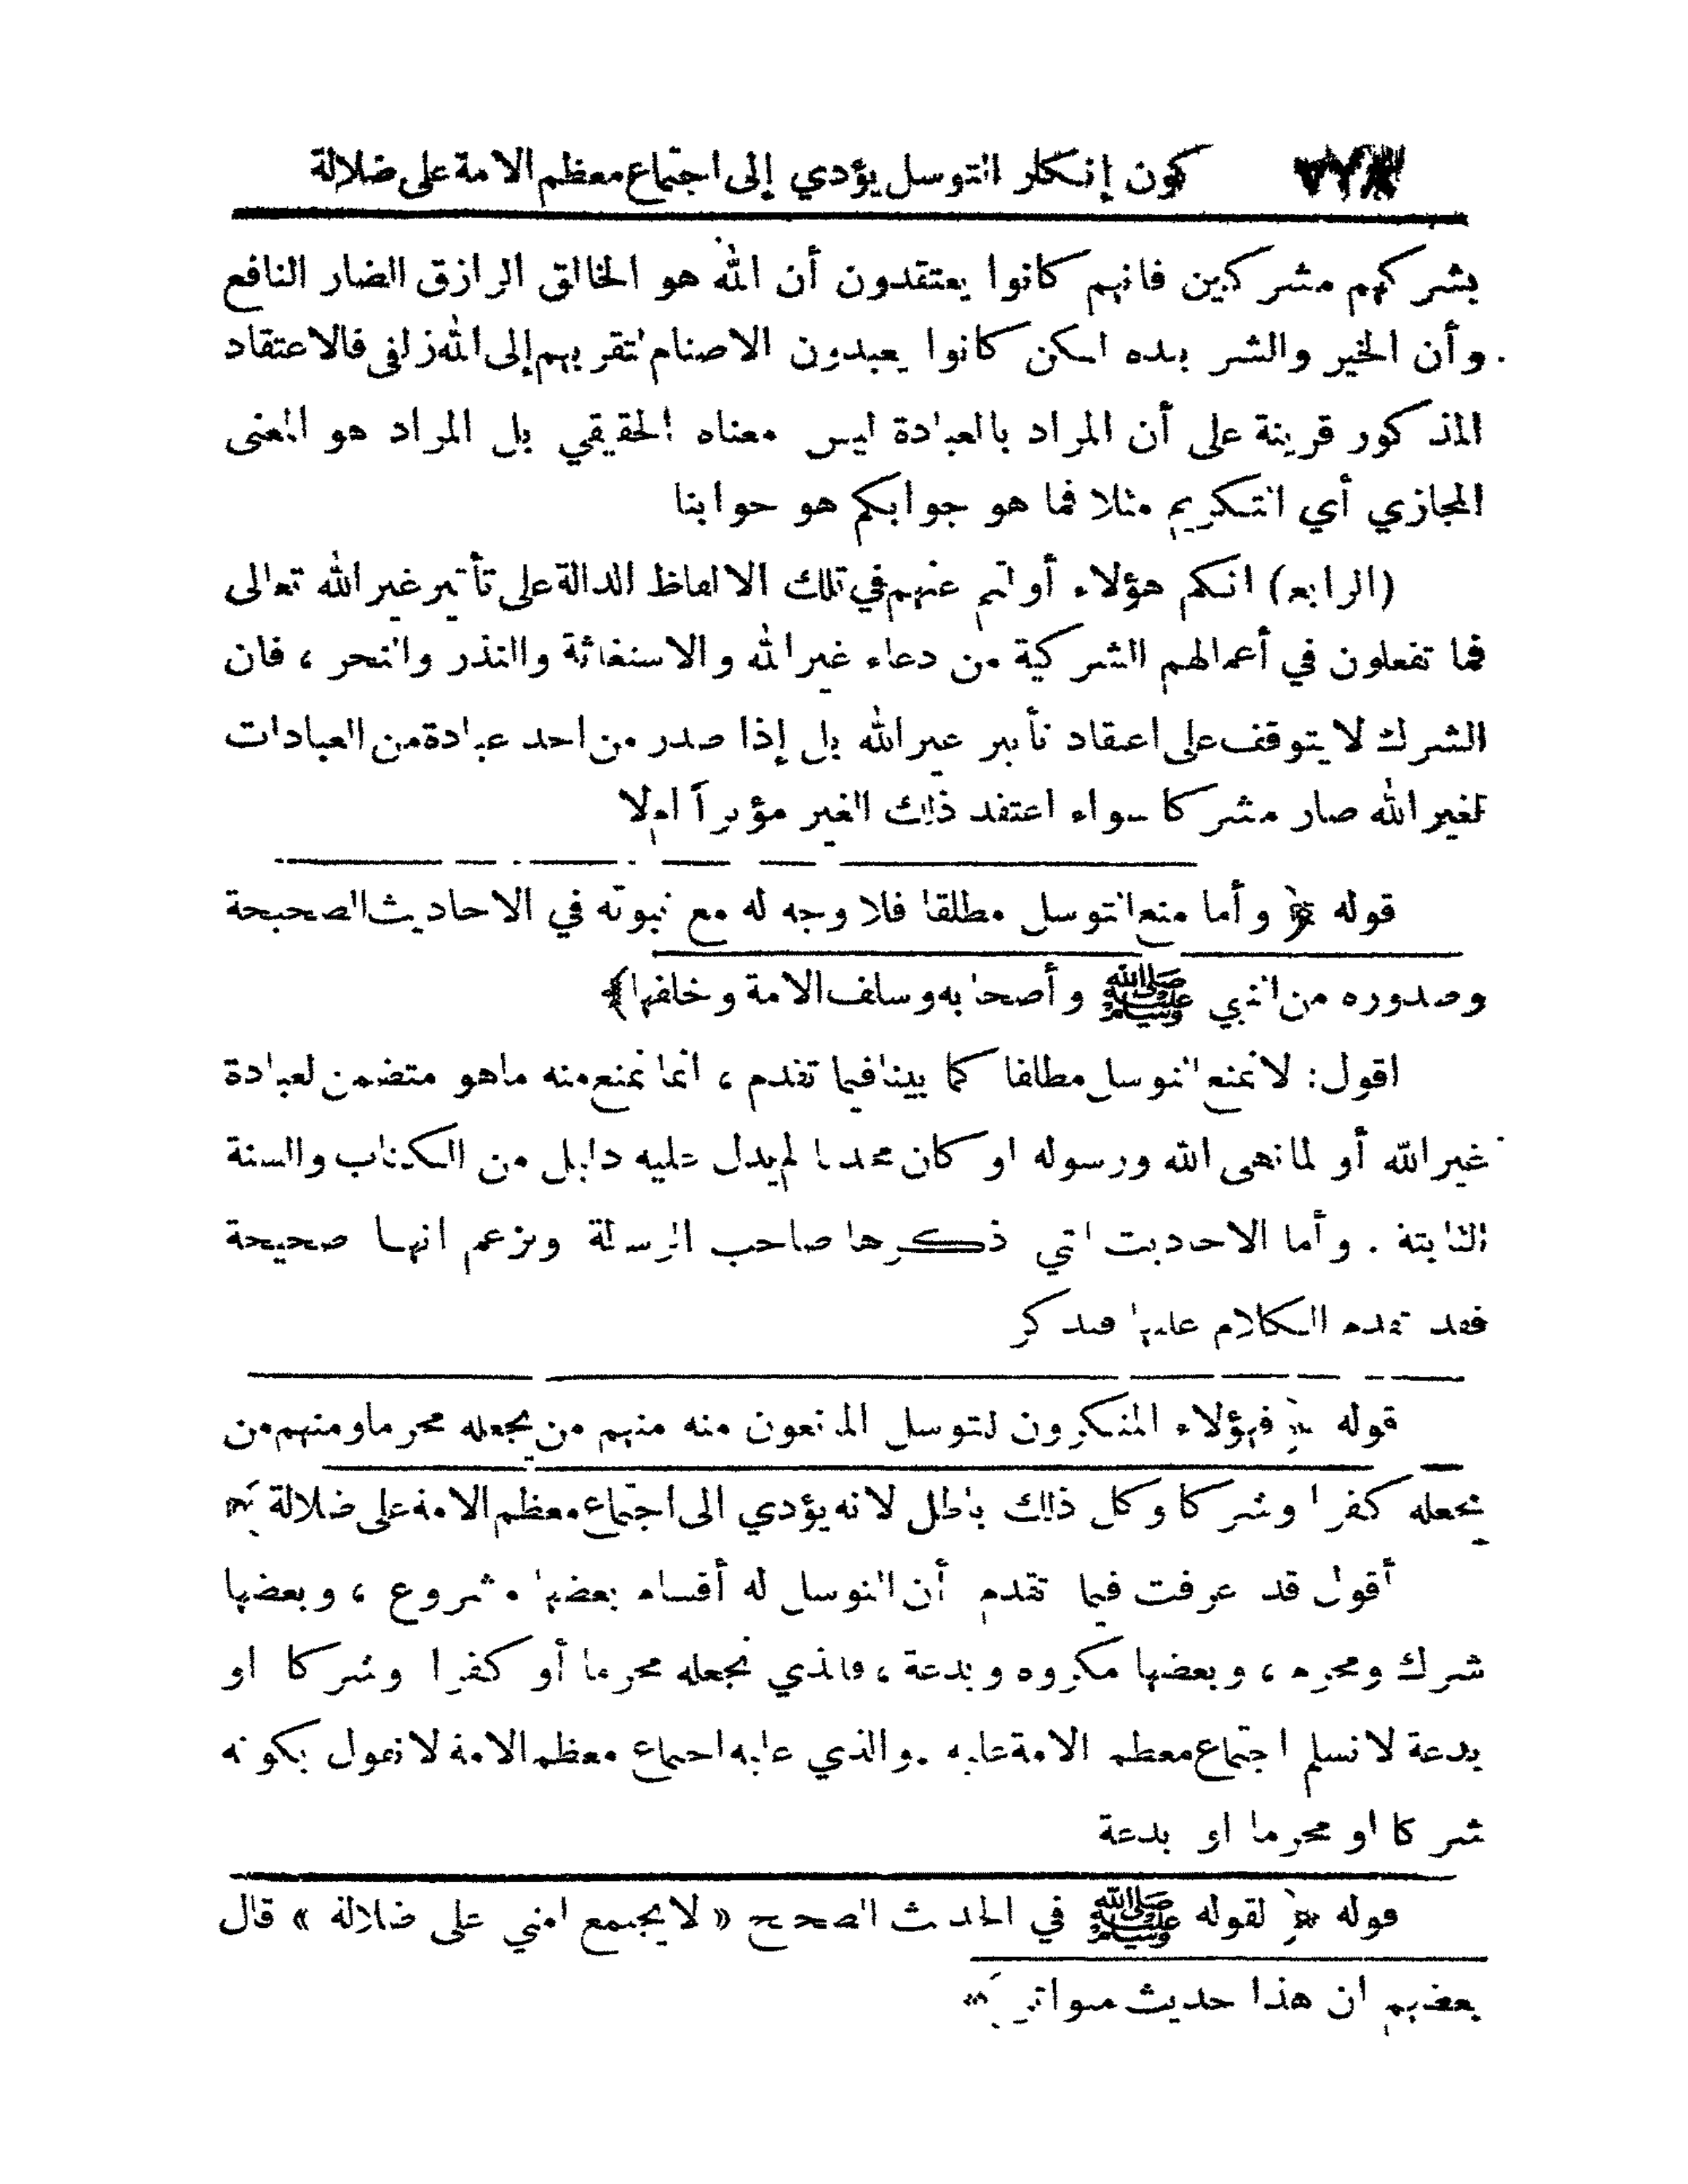 كون إنكار التوسل يؤدي إلى اجتماع معظم الامة على ضلالة
بشركهم مشركين فانهم كانوا يعتقدون أن الله هو الخالق الرازق الضار النافع
وأن الخير والشر بيده لكن كانوا يعبدون الاصنام لتقربهم إلى الله زلفى فالاعتقاد
المذكور قرينة على أن المراد بالعبادة ليس معناه الحقيقي بل المراد هو المعنى
المجازي أي التكريم مثلا فما هو جوابكم هو جوابنا
(الرابع) انكم هؤلاء أولتم عنهم في تلك الالفاظ الدالة على تأثير غير الله تعالى
فما تفعلون في أعمالهم الشركية من دعاء غير الله والاستغاثة والنذر والنحر ، فان
الشرك لا يتوقف على اعتقاد تأثير غير الله بل إذا صدر من احد عبادة من العبادات
لغير الله صار مشركا سواء اعتقد ذلك الغير مؤثراً ام لا
قوله ﴿ وأما منع التوسل مطلقا فلا وجه له مع ثبوته في الاحاديث الصحيحة
وصدوره من النبي ﷺ وأصحابه وسلف الامة وخلفها ﴾
اقول: لا نمنع التوسل مطلقا كما بينا فيما تقدم ، انما نمنع منه ماهو متضمن لعبادة
غير الله أو لما نهى الله ورسوله او كان محدثا لم يدل عليه دليل من الكتاب والسنة
الثابتة . وأما الاحاديث التي ذكرها صاحب الرسالة ونزعم انها صحيحة
فقد تقدم الكلام عليها فتذكر
قوله ﴿ فهؤلاء المنكرون للتوسل المانعون منه منهم من يجعله محرما ومنهم من
يجعله كفرا وشركا وكل ذلك باطل لانه يؤدي الى اجتماع معظم الامة على ضلالة ﴾
أقول قد عرفت فيما تقدم أن التوسل له أقسام بعضها مشروع ، وبعضها
شرك ومحرم ، وبعضها مكروه وبدعة ، فالذي نجعله محرما أو كفرا وشركا او
بدعة لا نسلم اجتماع معظم الامة عليه . والذي عليه اجتماع معظم الامة لا نقول بكونه
شركا او محرما او بدعة
قوله ﴿ لقوله ﷺ في الحديث الصحيح « لا يجتمع امتي على ضلالة » قال
بعضهم ان هذا حديث متواتر ﴾